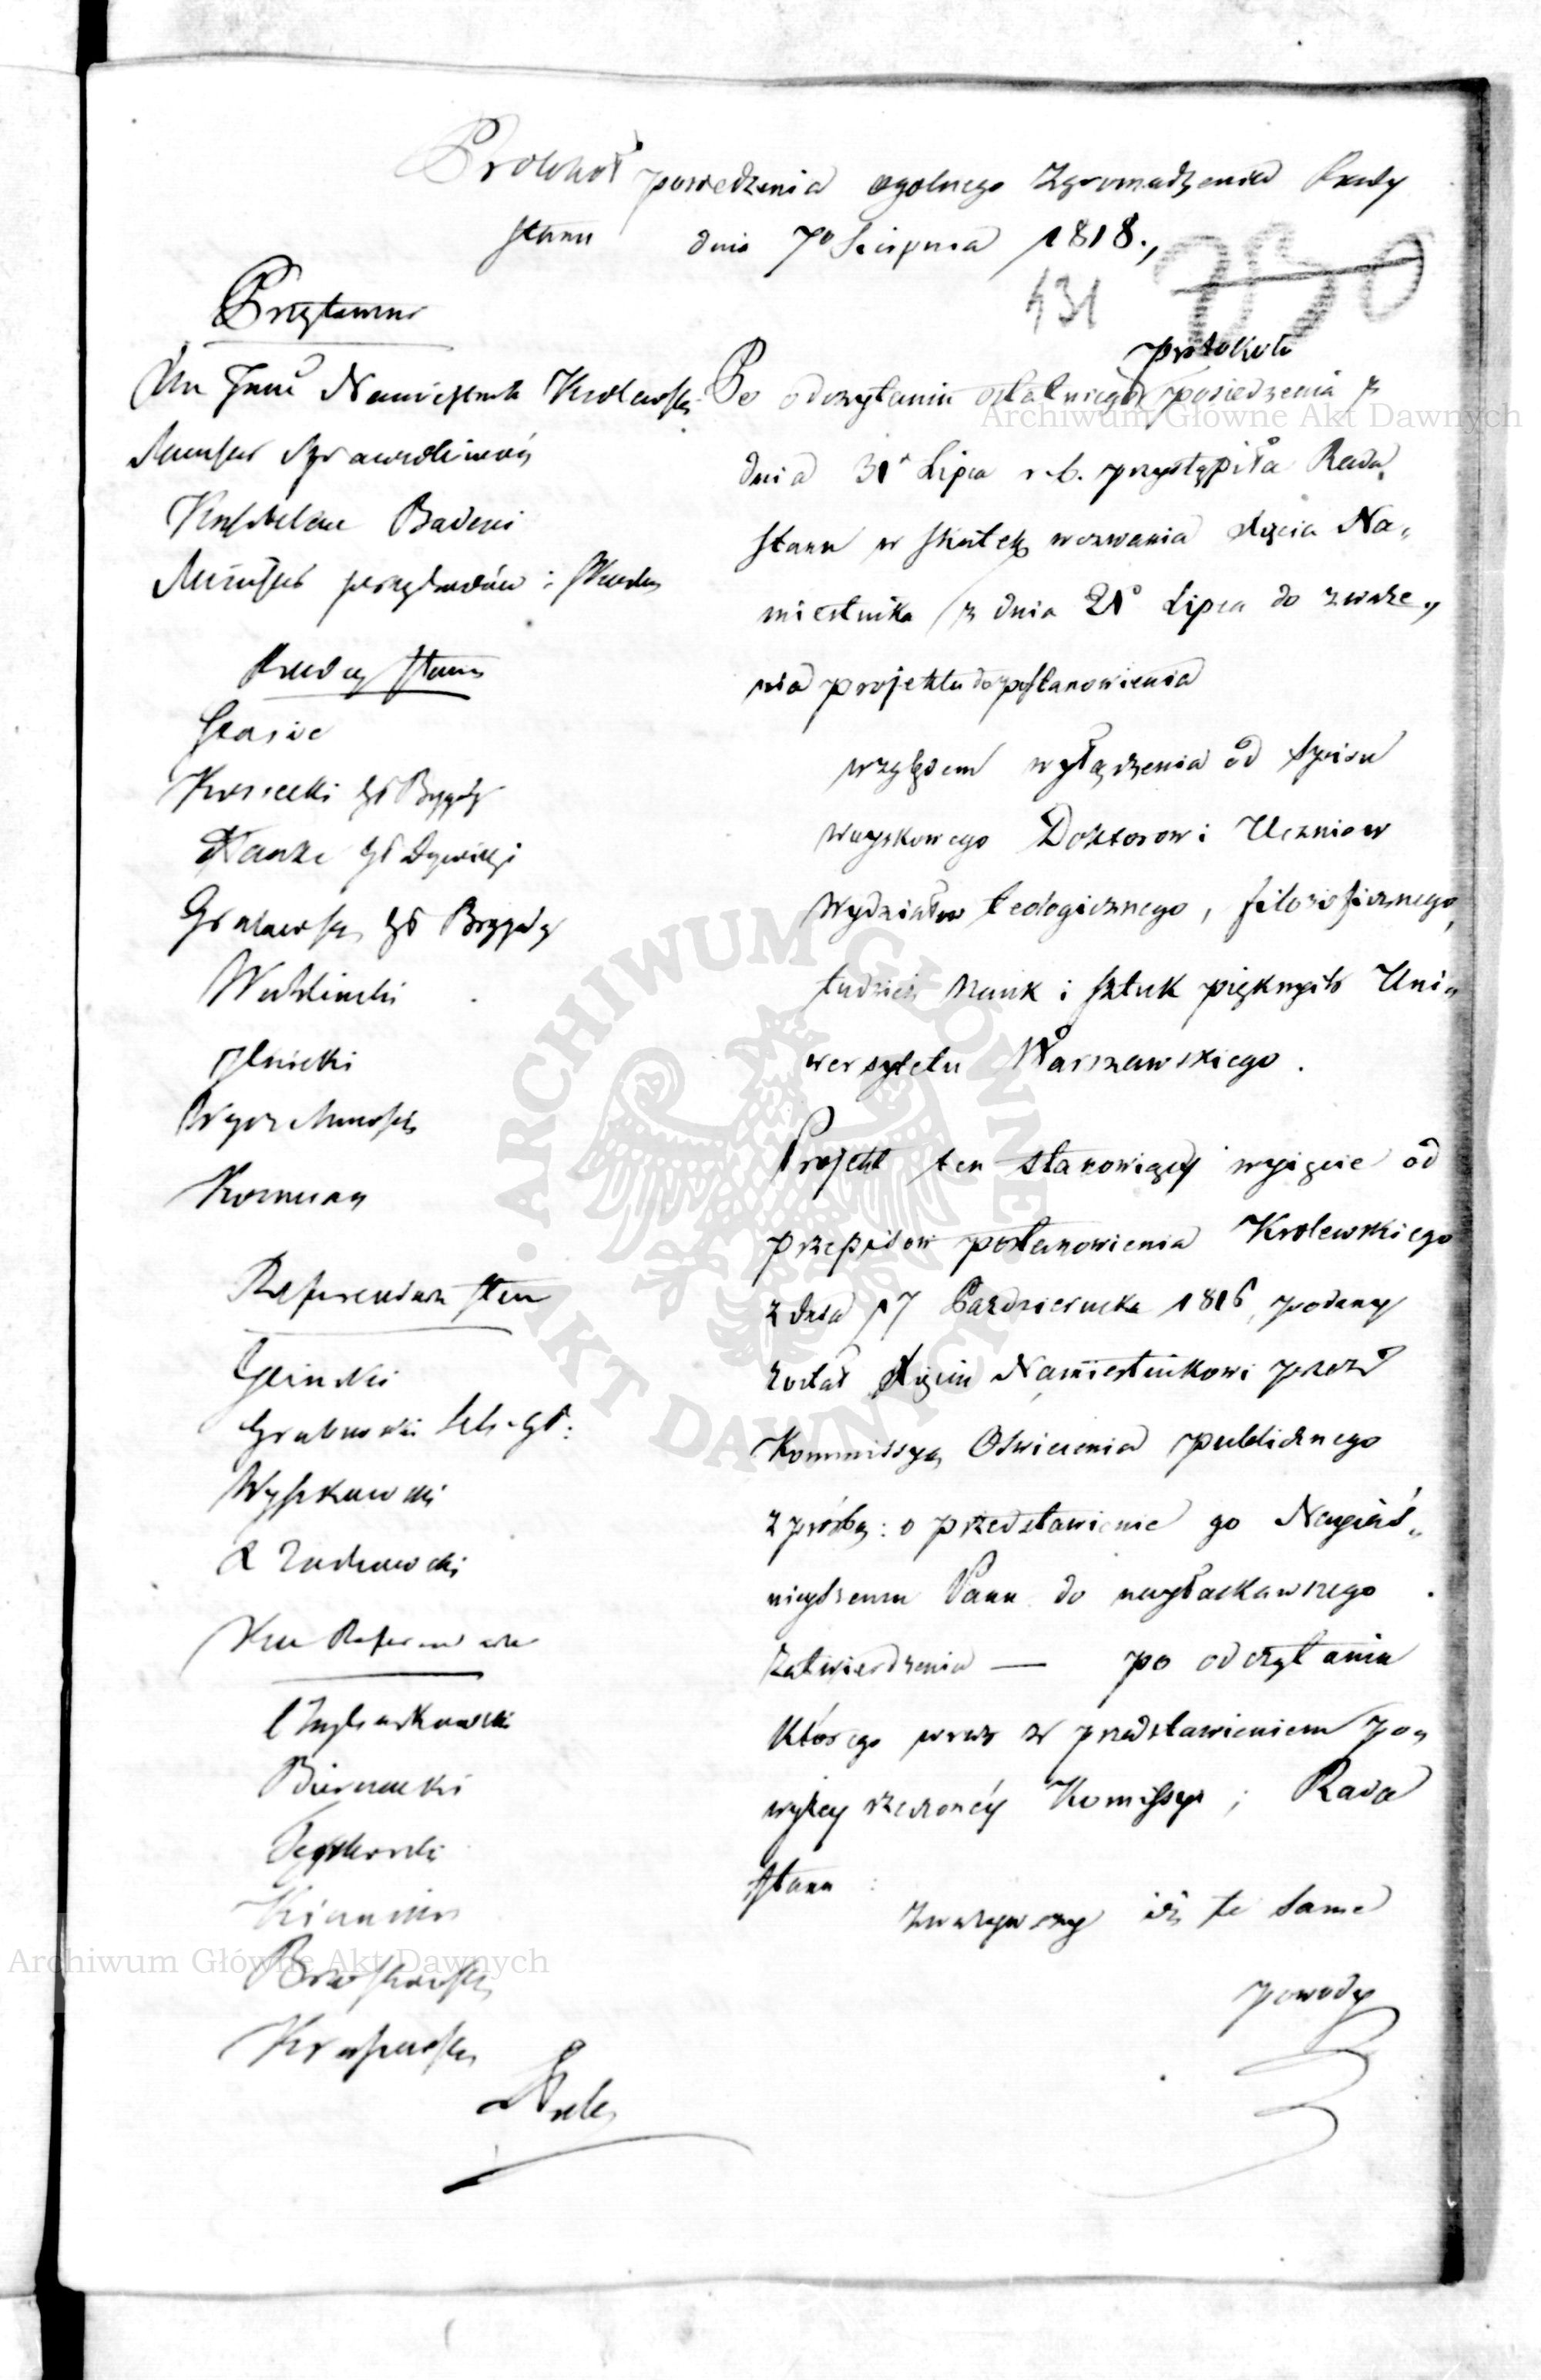 Protokół posiedzenia ogolnego Zgromadzenia Rady
Stanu dnia 7º Sierpnia 1818.,
431
Przytomni
Xże Jmć Namiestnik Królewski
Minister Sprawiedliwości
Kasztelan Badeni
Minister przychodów i Skarbu
Radcy Stanu
Staszic
Kossecki Gł Brygdy
Hauke Gł Dywizyi
Grabowski Gł Brygdy
Woźnicki
Wyczechowski
Koźmian
Referendarze Stanu
Gliński
Grabowski Sekr. Gł:
Wyszkowski
Zachowski
Nad Referendarze
Biernacki
Brzostowski
Kraszewski
Po odczytaniu ostatniego protokołu posiedzenia z
dnia 31º Lipca r.b. przystąpiła Rada
Stanu w skutek wezwania Xięcia Na„
miestnika z dnia 21º Lipca do zważe„
nia projektu do postanowienia
względem wyłączenia od Spisu
woyskowego Doktorow i Uczniow
Wydziałow teologicznego, filozoficznego,
tudzież Nauk i sztuk pięknych Uni„
wersytetu Warszawskiego.
Projekt ten stanowiący wyięcie od
przepisow postanowienia Krolewskiego
z dnia 17 Października 1816, podany
został Xięciu Namiestnikowi przez
Kommissyą Oświecenia publicznego
z prośbą: o przedstawienie go Nayiaś„
nieyszemu Panu do nayłaskawszego
zatwierdzenia — po odczytaniu
którego wraz z przedstawieniem po„
wyżey rzeczonéy Komissyi; Rada
Stanu:
zważywszy iż te same
powody
Archiwum Główne Akt Dawnych
Archiwum Główne Akt Dawnych
ARCHIWUM GŁÓWNE AKT DAWNYCH